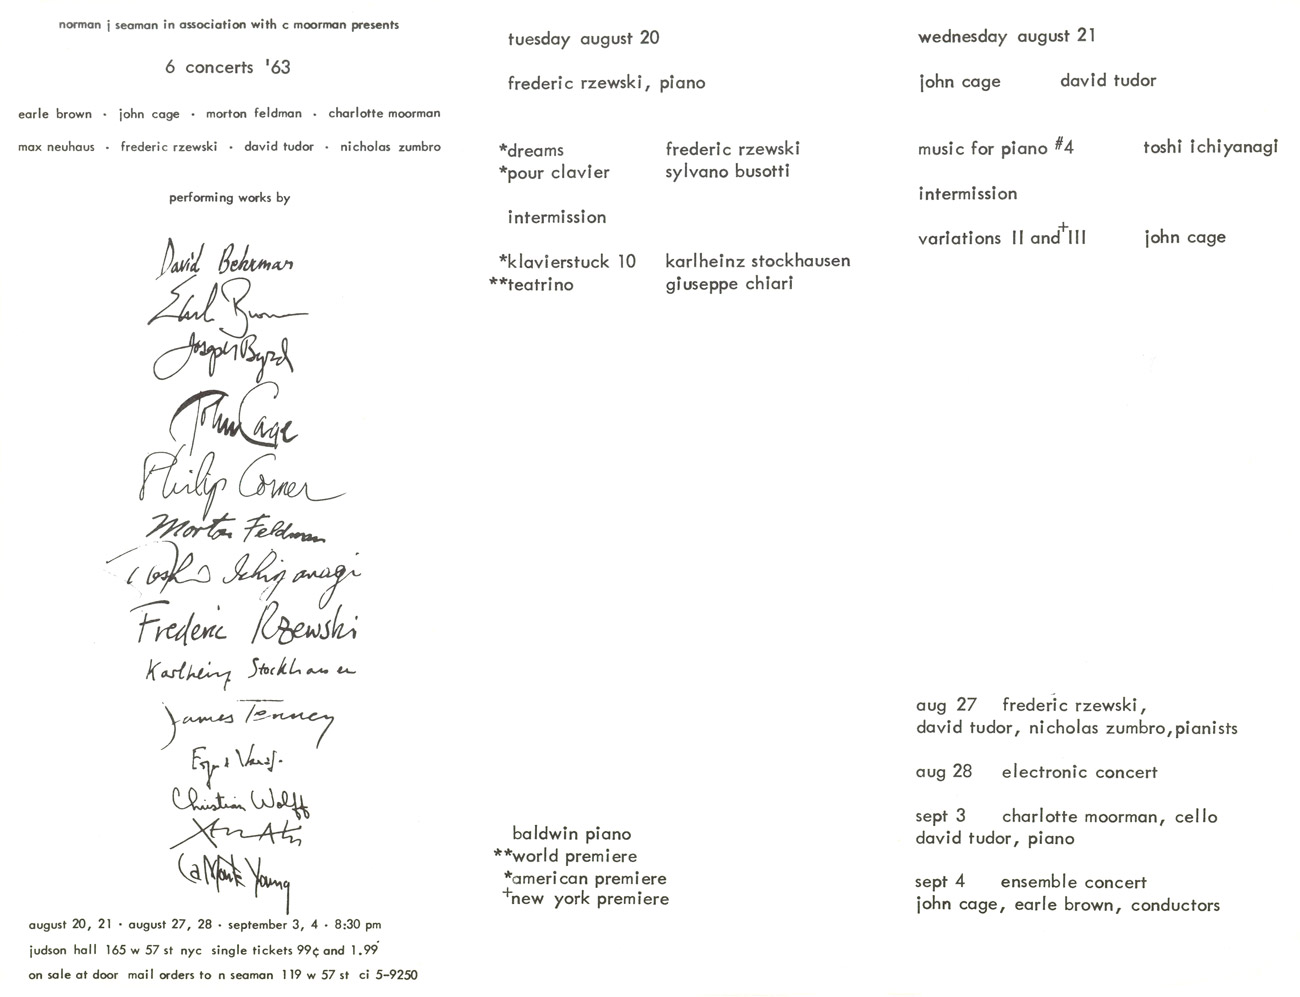 norman j seaman in association with c moorman presents
6 concerts '63
earle brown · john cage · morton feldman · charlotte moorman
max neuhaus · frederic rzewski · david tudor · nicholas zumbro
performing works by
David Behrman
Earle Brown
Joseph Byrd
John Cage
Philip Corner
Morton Feldman
Toshi Ichiyanagi
Frederic Rzewski
Karlheinz Stockhausen
James Tenney
Christian Wolff
La Monte Young
august 20, 21 · august 27, 28 · september 3, 4 · 8:30 pm
judson hall 165 w 57 st nyc single tickets 99¢ and 1.99
on sale at door mail orders to n seaman 119 w 57 st ci 5-9250
tuesday august 20
frederic rzewski, piano
*dreams frederic rzewski
*pour clavier sylvano busotti
intermission
*klavierstuck 10 karlheinz stockhausen
**teatrino giuseppe chiari
baldwin piano
**world premiere
*american premiere
+new york premiere
wednesday august 21
john cage david tudor
music for piano #4 toshi ichiyanagi
intermission
variations II and +III john cage
aug 27 frederic rzewski,
david tudor, nicholas zumbro, pianists
aug 28 electronic concert
sept 3 charlotte moorman, cello
david tudor, piano
sept 4 ensemble concert
john cage, earle brown, conductors